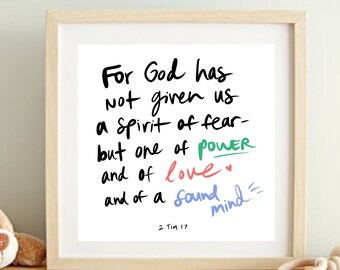 For God has
not given us
a spirit of fear-
but one of POWER
and of love
and of a sound
mind.
2 TIM 1 7